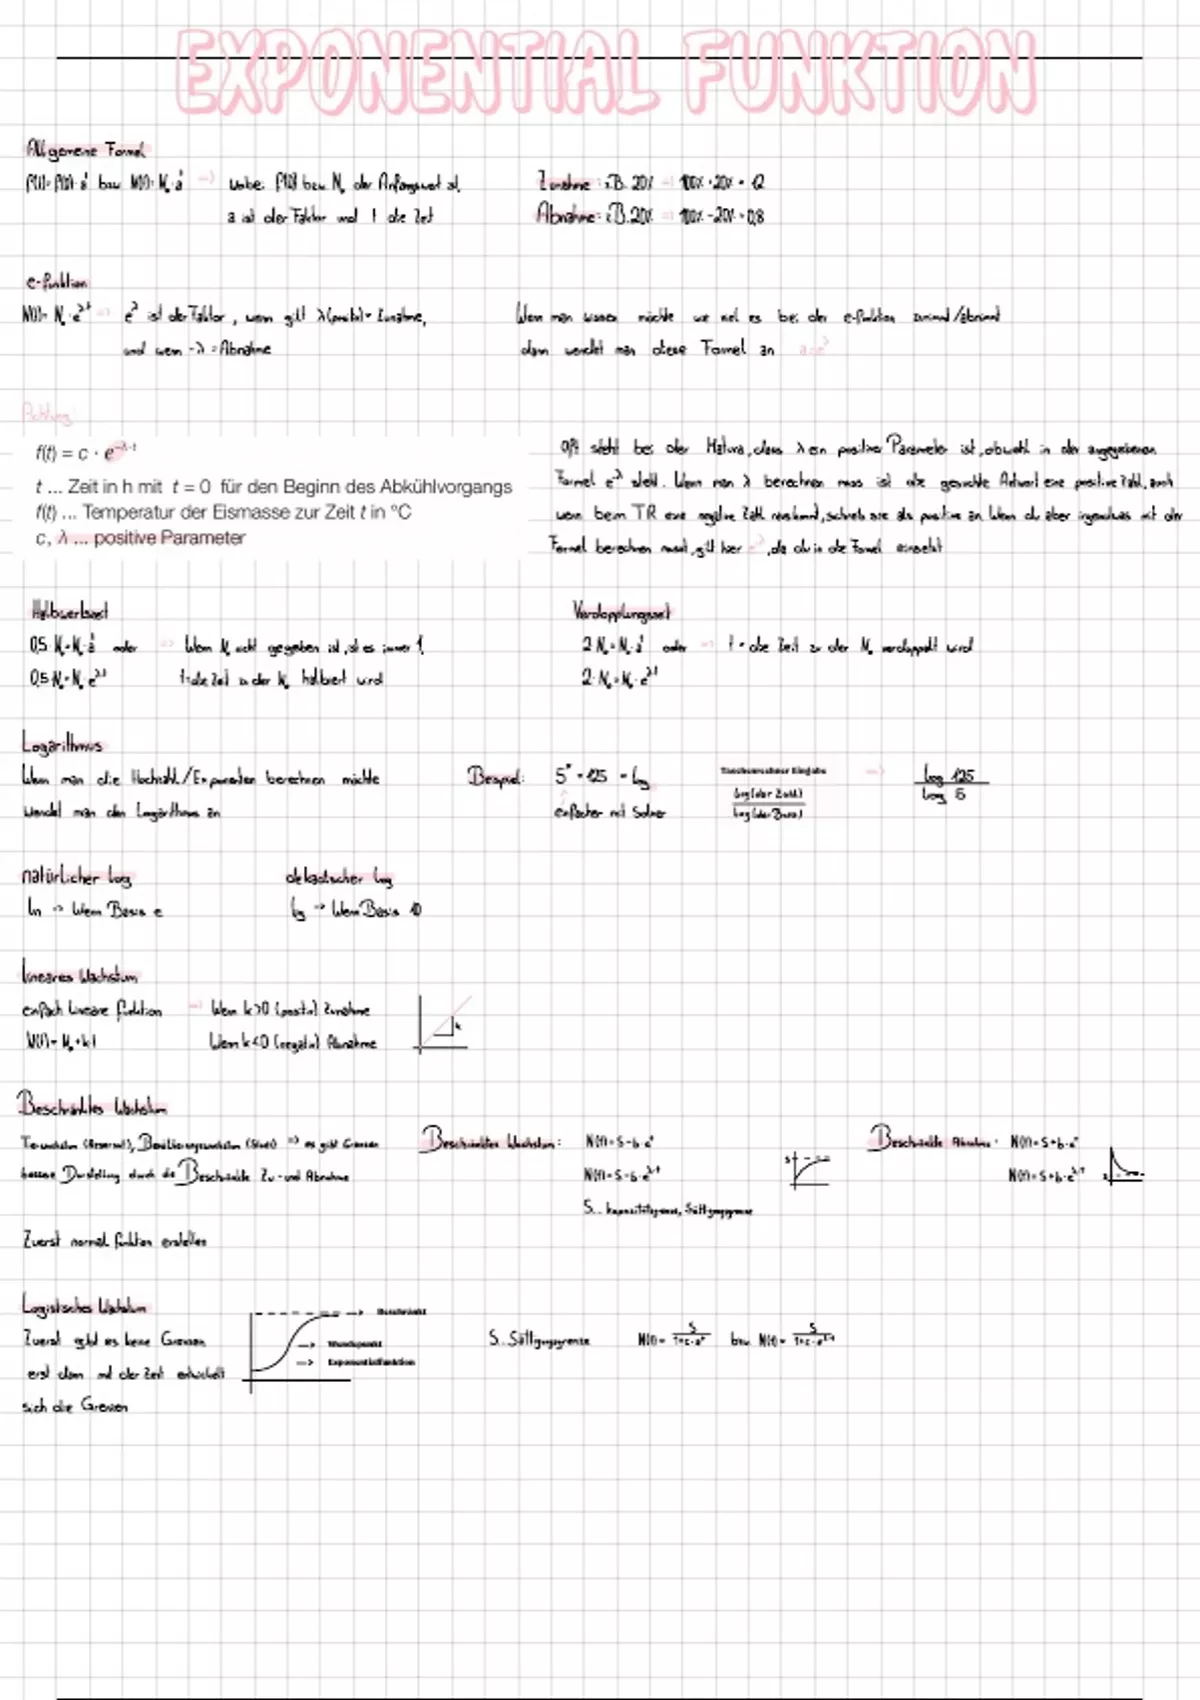 EXPONENTIAL FUNKTION
Allgemeine Formel
f(t)= f(0)·aᵗ bzw. N(t)= N₀·aᵗ => wobei f(0) bzw. N₀ der Anfangswert ist,
a ist der Faktor und t die Zeit
Zunahme: z.B. 20% => 100% + 20% = 1,2
Abnahme: z.B. 20% => 100% - 20% = 0,8
e-funktion
N(t)= N₀·e^λt => e^λ ist der Faktor, wenn gilt λ(positiv) = Zunahme,
und wenn -λ = Abnahme
Wenn man wissen möchte wie viel es bei der e-funktion zunimmt/abnimmt
dann wendet man diese Formel an a=e^λ
Achtung:
f(t) = c · e^–λ·t
t ... Zeit in h mit t = 0 für den Beginn des Abkühlvorgangs
f(t) ... Temperatur der Eismasse zur Zeit t in °C
c, λ ... positive Parameter
Oft steht bei der Matura, dass λ ein positiver Parameter ist, obwohl in der angegebenen
Formel e^-λ steht. Wenn man λ berechnen muss ist die gesuchte Antwort eine positive Zahl, auch
wenn beim TR eine negative Zahl rauskommt, schreib sie als positive an. Wenn du aber irgendwas mit der
Formel berechnen musst, gilt hier e^-λ, die du in die Formel einsetzt
Halbwertszeit
0,5·N₀=N₀·aᵗ oder => Wenn N₀ nicht gegeben ist, ist es immer 1.
0,5·N₀=N₀·e^λt t=die Zeit in der N₀ halbiert wird
Verdopplungszeit
2·N₀=N₀·aᵗ oder => t = die Zeit in der N₀ verdoppelt wird
2·N₀=N₀·e^λt
Logarithmus
Wenn man die Hochzahl/Exponenten berechnen möchte
wendet man den Logarithmus an
Beispiel: 5ˣ = 125 = log
einfacher mit Solver
Taschenrechner Eingabe
log(der Zahl)
log(der Basis)
=> log 125
log 5
natürlicher log
ln => Wenn Basis e
dekadischer log
lg => Wenn Basis 10
lineares Wachstum
einfach lineare funktion => Wenn k>0 (positiv) Zunahme
N(t)= N₀+k·t Wenn k<0 (negativ) Abnahme
k
Beschränktes Wachstum
=> es gibt Grenzen
bessere Darstellung durch die Beschränkte Zu- und Abnahme
Beschränktes Wachstum: N(t)= S-b·aᵗ
N(t)= S-b·e^λ·t
S... Kapazitätsgrenze, Sättigungsgrenze
Beschränkte Abnahme: N(t)= S+b·aᵗ
N(t)= S+b·e^λ·t
Zuerst normal funktion erstellen
Logistisches Wachstum
Zuerst gibt es keine Grenzen
erst dann mit der Zeit entwickelt
sich die Grenzen
--> Beschränkt
--> Wendepunkt
--> Exponentialfunktion
S... Sättigungsgrenze N(t)= S/(1+c·aᵗ) bzw. N(t)= S/(1+c·e^λ·t)